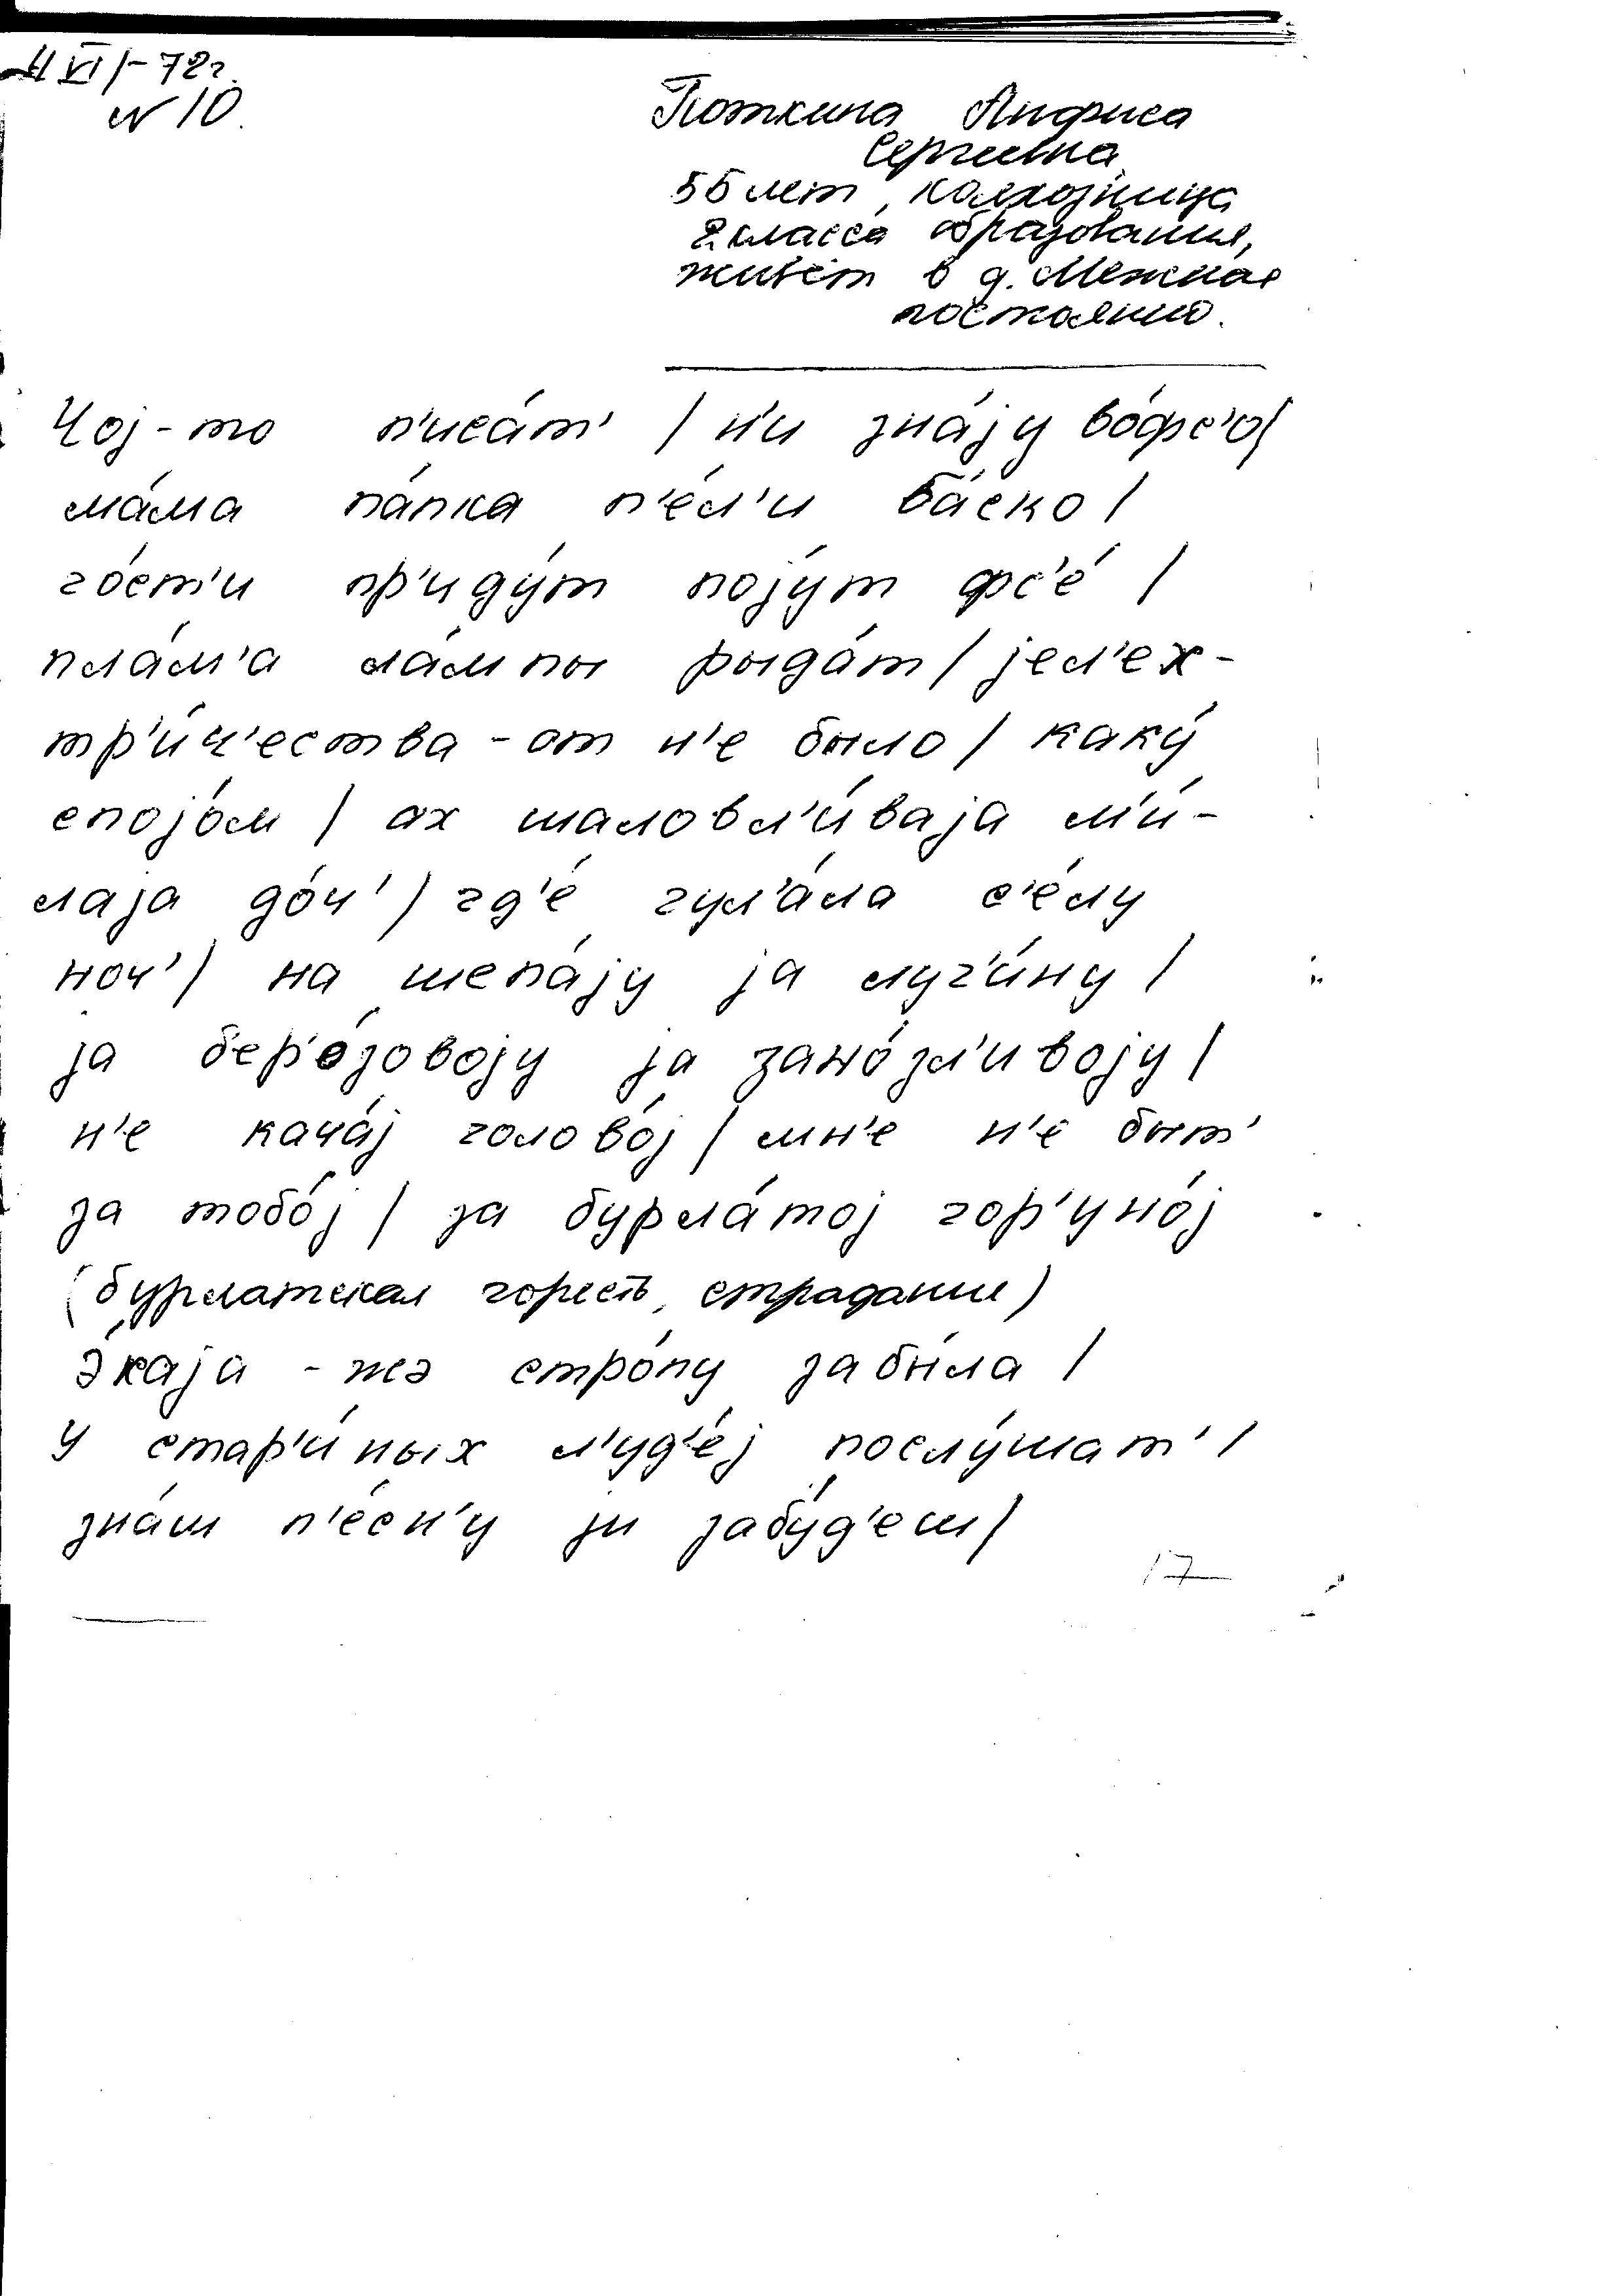 4 VI - 72 г.
№ 10.
Поткина Анфиса
Сергеевна
55 лет, колхозница
2 класса образования,
живёт в д. Межная
постоянно.
Чоj-то п'иса́т' / н'и зна́jу во́фс'о /
ма́ма па́пка п'е́л'и ба́ско /
го́ст'и пр'иду́т поjу́т фс'е́ /
пла́м'а ла́мпы рыда́т / jел'ех-
тр'и́ч'ества-от н'е было / каку́
споjо́м / ах шаловл'и́ваjа м'и́-
лаjа до́ч' / гд'е́ гул'а́ла с'е́лу
ноч' / на шепа́jу jа луч'и́ну /
jа бер'о́зовоjу jа зано́зл'ивоjу /
н'е кача́j голово́j / мн'е н'е́ быт'
за тобо́j / за бурла́тоj гор'уно́j
(бурлатская горесть, страдание)
э́каjа-жэ стро́пу забы́ла /
у стар'и́ных л'уд'е́j послу́шат' /
зна́ш п'е́сн'у jи забу́д'еш /
17